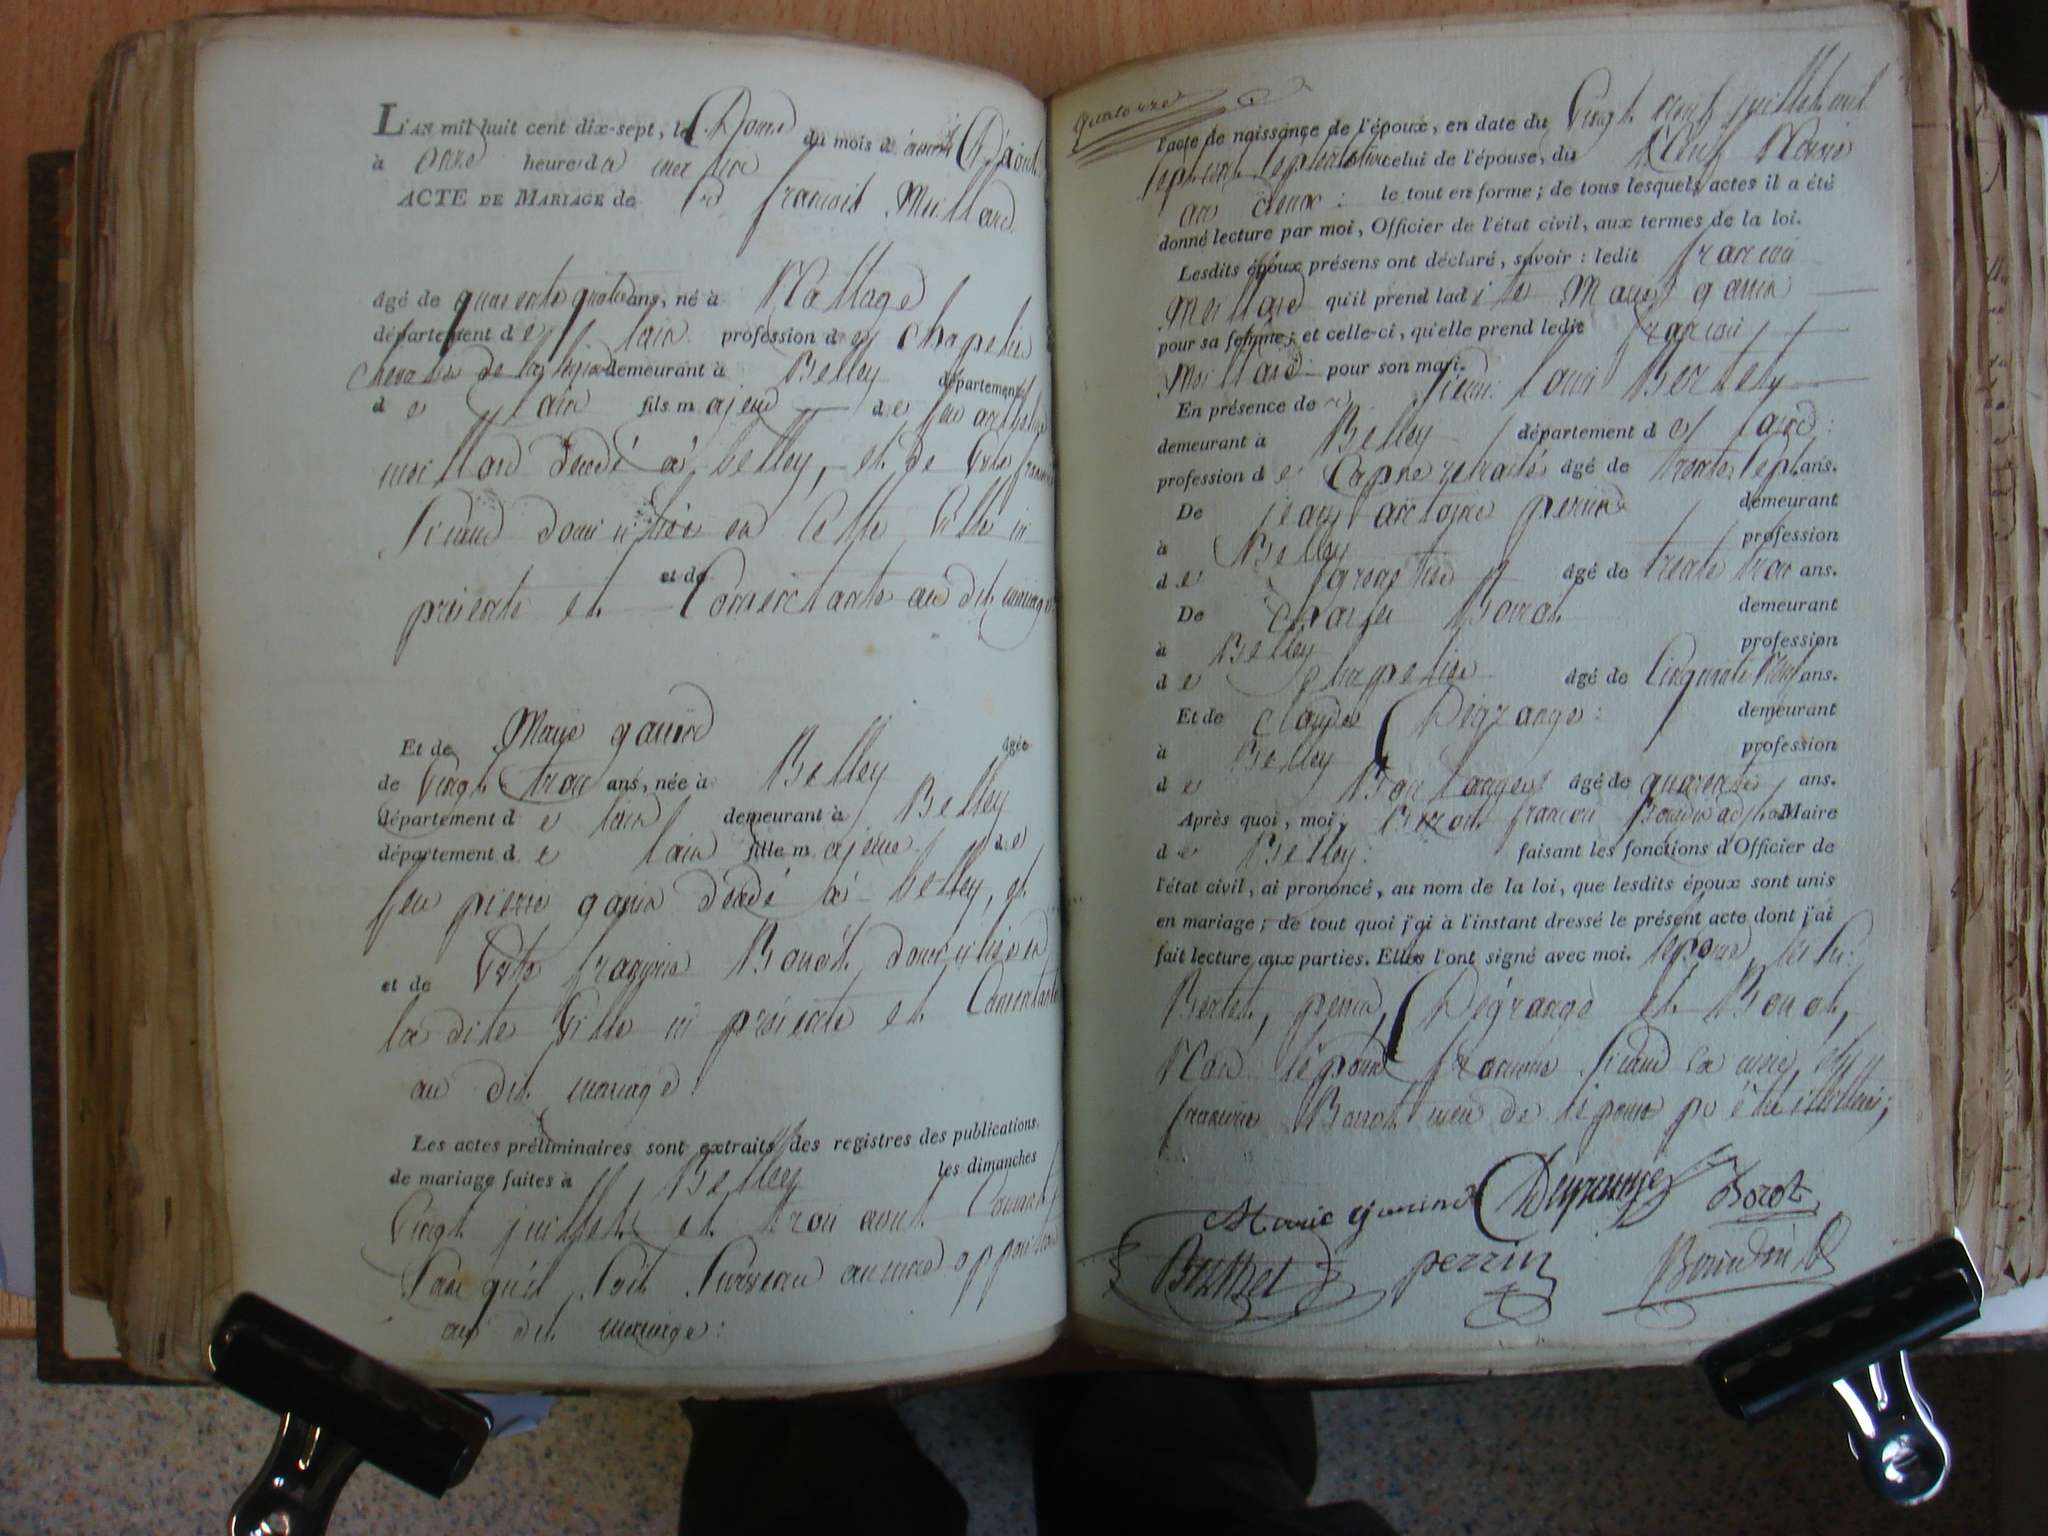 L'AN mil huit cent dix-sept, le Douze du mois d'août D'août
à onze heure du matin
ACTE DE MARIAGE de Sr françois Moillard
âgé de quarente quatre ans, né à Nattage
département de l'ain profession de chapelier
chevalier de la légion demeurant à Belley département
de l'ain fils majeur de feu anthelme
moillard décédé à belley, et de Vve françoise
Sicaud domiciliée en Cette Ville ici
et de
présente et Consentante au dit mariage
Et de Marie ganin âgée
de Vingt trois ans, née à Belley
département de l'ain demeurant à Belley
département de l'ain fille majeure de
feu pierre ganin décédé à belley, et
et de Vve françoise Bonot domiciliée en
la dite Ville ici présente et Consentante
au dit mariage
Les actes préliminaires sont extraits des registres des publications
de mariage faites à Belley les dimanches
Vingt juillet et trois aout Courant
Sans qu'il Soit Survenu aucune opposition
au dit mariage :
quatorze
l'acte de naissance de l'époux, en date du Vingt neuf juillet mil
Sept cent Septante celui de l'épouse, du Neuf Nivose
an deux : le tout en forme ; de tous lesquels actes il a été
donné lecture par moi, Officier de l'état civil, aux termes de la loi.
Lesdits époux présens ont déclaré, savoir : ledit françois
Moillard qu'il prend ladite Marie ganin
pour sa femme ; et celle-ci, qu'elle prend ledit françois
Moillard pour son mari.
En présence de Sieur louis Berthet
demeurant à Belley département de l'ain :
profession de Capne retraité âgé de trente sept ans.
De jean antoine perrin demeurant
à Belley profession
de âgé de trente trois ans.
De Charles Bonot demeurant
à Belley profession
de chapelier âgé de Cinquante Neuf ans.
Et de claude Dégrange : demeurant
à Belley profession
de Boulanger âgé de quarente ans.
Après quoi, moi, françois Maire
de Belley : faisant les fonctions d'Officier de
l'état civil, ai prononcé, au nom de la loi, que lesdits époux sont unis
en mariage ; de tout quoi j'ai à l'instant dressé le présent acte dont j'ai
fait lecture aux parties. Elles l'ont signé avec moi. l'épouse, les Sr
Bertet, perrin, Dégrange et Bonot,
Non l'époux françoise Sicaud sa mère, et
françoise Bonot mère de l'épouse pr être illettrés ;
Marie ganin Degrange Bonot
Berthet perrin